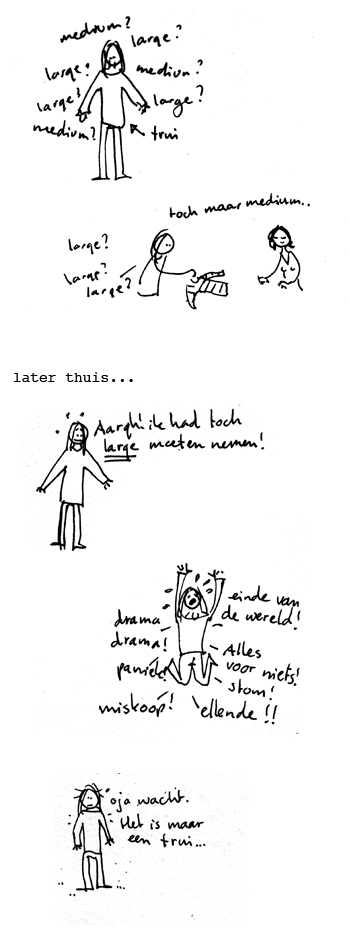 medium?
large?
large?
medium?
large?
large?
medium?
trui
toch maar medium..
large?
large?
large?
later thuis...
Aargh! ik had toch
large moeten nemen!
drama
drama!
paniek!
miskoop!
einde van
de wereld!
Alles
voor niets!
stom!
ellende!!
oja wacht.
Het is maar
een trui...